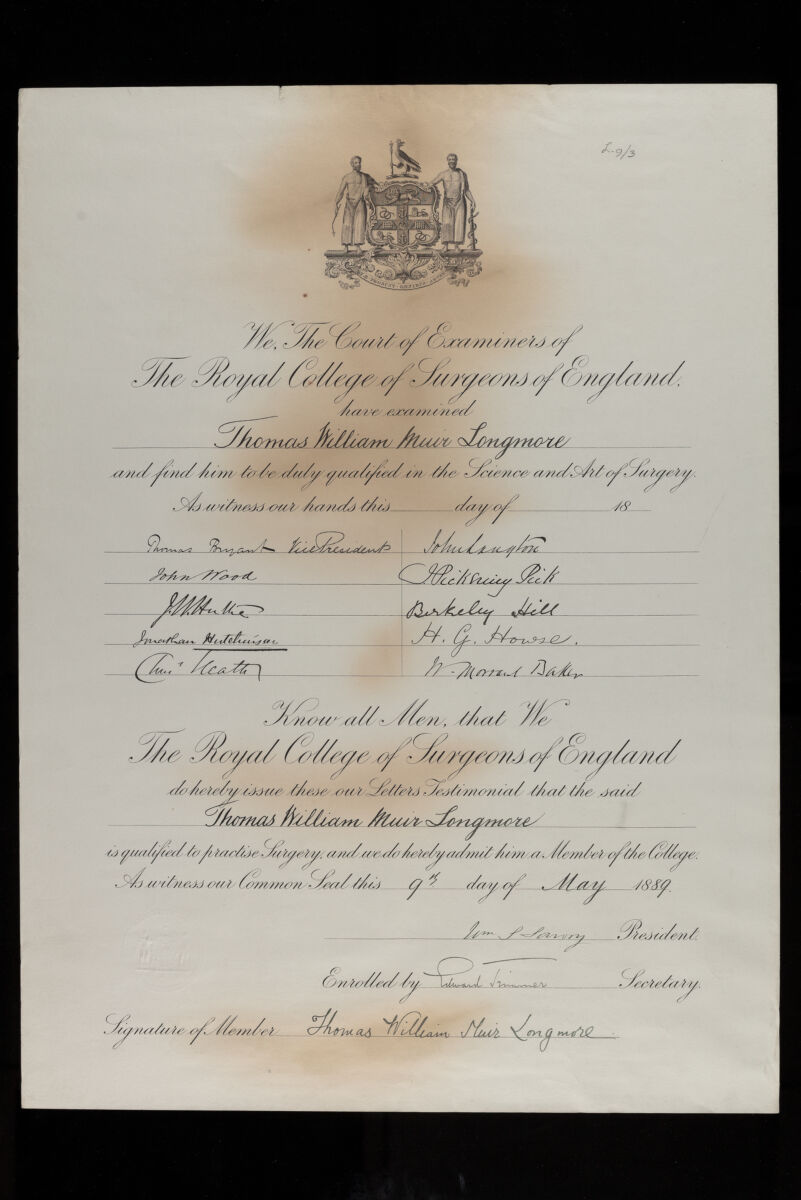 L 9/3
We, The Court of Examiners of
The Royal College of Surgeons of England,
have examined
Thomas William Muir Longmore
and find him to be duly qualified in the Science and Art of Surgery.
As witness our hands this day of 18
Thomas Bryant Vice President John Langton
John Wood T Pickering Pick
J W Hulke Berkeley Hill
Jonathan Hutchinson H. G. Howse.
Chrisr Heath W. Morrant Baker
Know all Men, that We
The Royal College of Surgeons of England
do hereby issue these our Letters Testimonial that the said
Thomas William Muir Longmore
is qualified to practise Surgery, and we do hereby admit him a Member of the College.
As witness our Common Seal this 9th day of May 1889.
Wm S Savory President.
Enrolled by Edward Trimmer Secretary.
Signature of Member Thomas William Muir Longmore